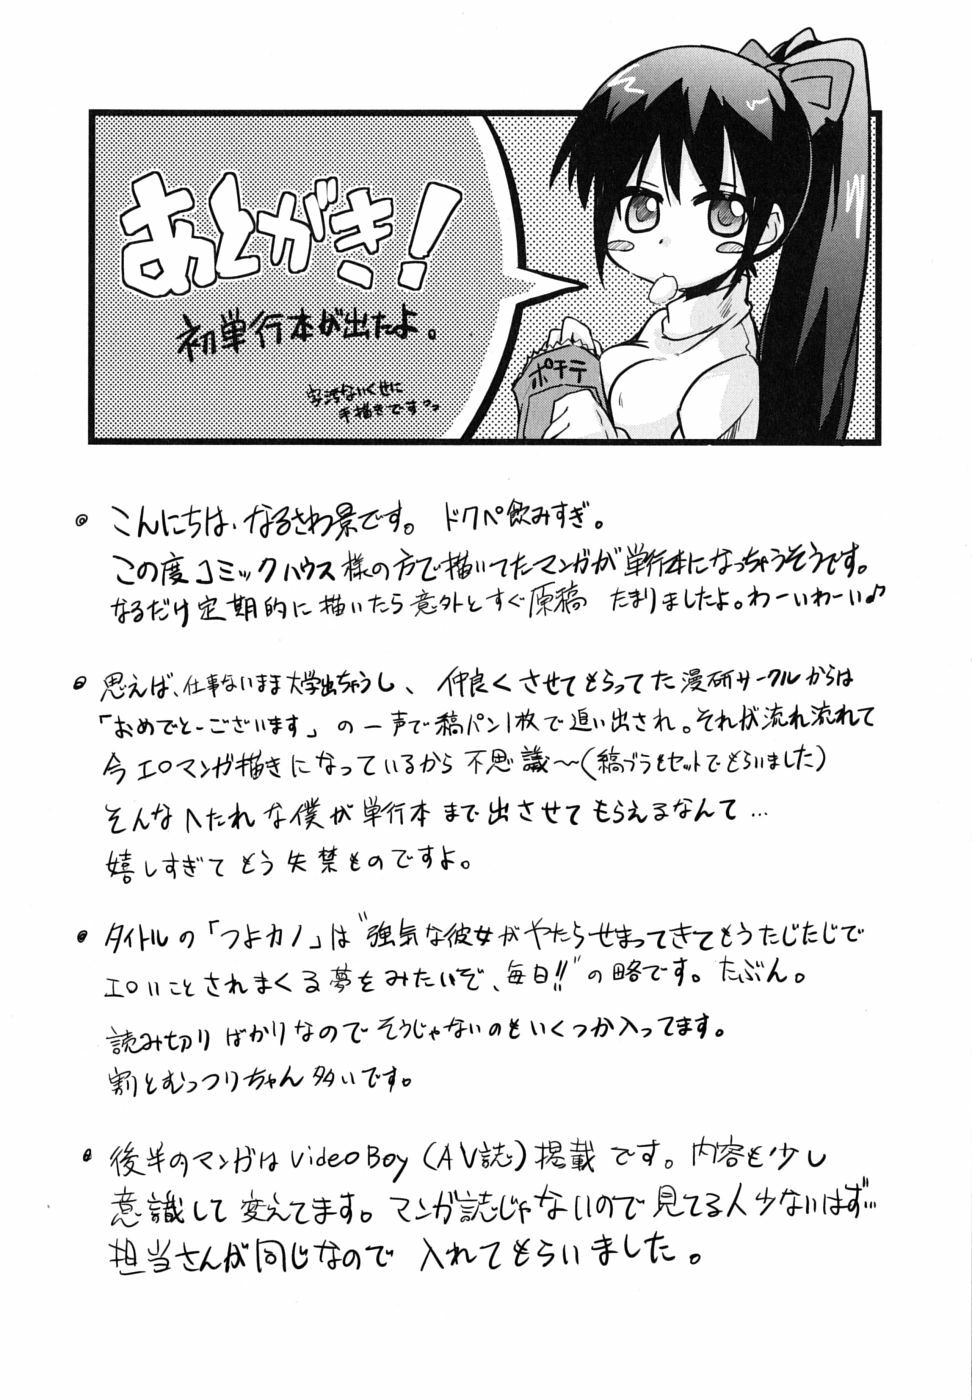 あとがき!
初単行本が出たよ。
字汚ないくせに
手描きですヨっ
ポテチ
こんにちは、なるさわ景です。 ドクペ飲みすぎ。
この度コミックハウス様の方で描いてたマンガが単行本になっちゃうそうです。
なるだけ定期的に描いたら意外とすぐ原稿 たまりましたよ。わーいわーい♪
思えば、仕事ないまま大学出ちゃうし、仲良くさせてもらってた漫研サークルからは
「おめでとーございます」の一声で縞パン1枚で追い出され。それ以流れ流れて
今エロマンガ描きになっているから不思議〜(縞ブラもセットでもらいました)
そんなへたれな僕が単行本まで出させてもらえるなんて…
嬉しすぎてもう失禁ものですよ。
タイトルの「つよカノ」は"強気な彼女がやたらせまってきてもうたじたじで
エロいことされまくる夢をみたいぞ、毎日!!"の略です。たぶん。
読み切りばかりなのでそうじゃないのもいくつか入ってます。
割とむっつりちゃん多いです。
後半のマンガはVideoBoy(AV誌)掲載です。内容も少し
意識して変えてます。マンガ誌じゃないので見てる人少ないはず…
担当さんが同じなので入れてもらいました。